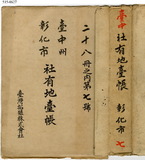 臺中 社有地臺帳 彰化市 七
二十八冊之内第七號
臺中州
彰化市
社有地臺帳
臺灣拓殖株式會社